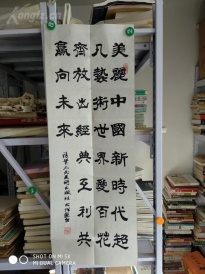 美麗中國新時代超
凡藝術世界蔑百花
齊放出經典互利共
贏向未來
REDMI NOTE 5
MI DUAL CAMERA